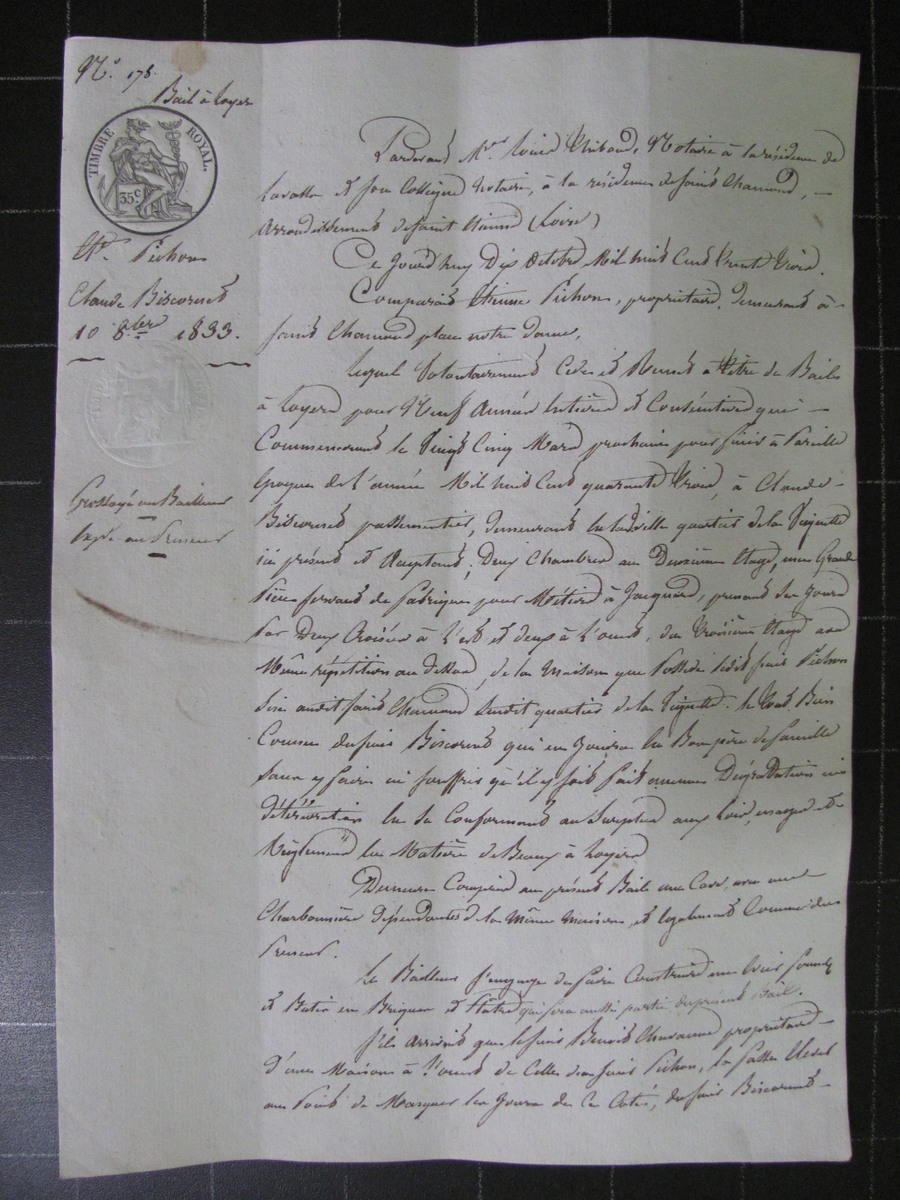 N.° 178.
Bail à loyer
TIMBRE ROYAL.
35 C.
Et. Pichon
Claude Biscornet
10 8bre 1833.
Grossoyé au Bailleur
Exp.é au Preneur
Pardevant M.tre Louis Thibaud, Notaire à la résidence de
Lavalla et son Collègue Notaire, à la résidence de Saint Chamond,
arrondissement de Saint Etienne (Loire)
Ce Jourd'huy Dix Octobre Mil huit Cent Trente Trois.
Comparait Etienne Pichon, propriétaire, demeurant à
Saint Chamond place notre dame,
Lequel Volontairement Cède et Remet à titre de Bail
à loyer pour Neuf Années Entières et Consécutives qui
Commenceront le Vingt Cinq Mars prochain pour finir à Pareille
époque de l'année Mil huit Cent quarante Trois, à Claude
Biscornet passementier, demeurant en ladite ville quartier de la
ici présent et Acceptant; Deux Chambres au Deuxième étage, une Grande
Pièce servant de fabrique pour Métiers à Jacquard, prenant ses jours
Par Deux Croisées à l'est et deux à l'ouest, du Troisième étage
Même répétition au dessus, de la Maison que Possède ledit sieur Pichon
Sise audit Saint Chamond susdit quartier de la le tout Bien
Connu du sieur Biscornet qui en Jouira En Bon père de famille
Sans y faire ni souffrir qu'il y soit fait aucunes Dégradations ni
détérioration En se Conformant au Surplus aux Lois, usages et
Règlements En Matière de Beaux à Loyers
Demeure Compris au présent Bail une Cave, avec une
Charbonnière dépendantes de la Même maison, et également Connue du
Preneur.
Le Bailleur s'engage de faire Construire une
et Batie en Briques et Plâtre qui fera aussi partie du présent Bail.
S'il arrivait que le sieur Benoit Chavanne propriétaire
D'une Maison à l'ouest de Celle du sieur Pichon, la fasse Elever
au Point de Masquer les Jours de Ce Coté, du sieur Biscornet